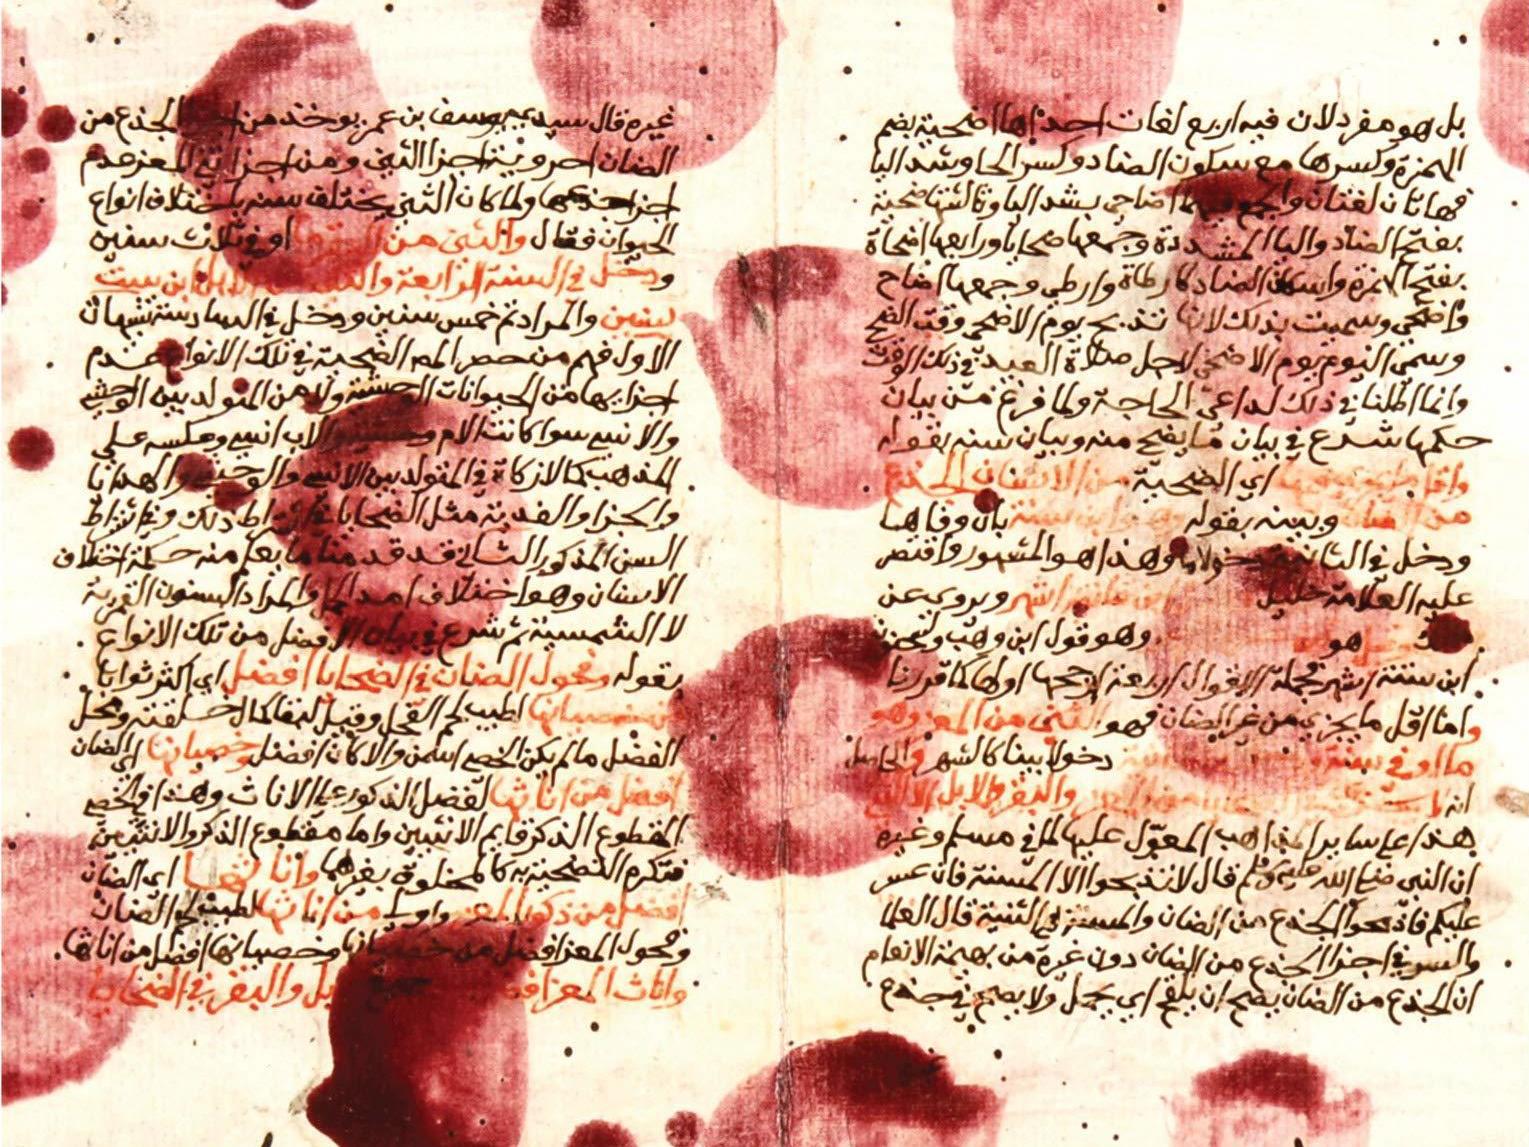 بل هو مفرد لان فيه اربع لغات احداها اضحية بضم
الهمزة وكسرها مع سكون الضاد وكسر الحا وشد اليا
فهاتان لغتان والجمع فيهما اضاحي بشد اليا وثالثها ضحية
بفتح الضاد واليا المشددة وجمعها ضحايا ورابعها اضحاة
بفتح الهمزة واسكان الضاد كارطاة وارطى وجمعها اضاح
واضحى وسميت بذلك لانها تذبح يوم الاضحى وقت الضحى
وسمى اليوم يوم الاضحى لاجل صلاة العيد في ذلك الوقت
وانما اطلنا في ذلك لداعي الحاجة ولما فرغ من بيان
حكمها شرع في بيان ما يضحى منه وبيان سنه بقوله
اي الضحية من الاسنان الجذع
من الضان وبينه بقوله ابن سنة بان وفاها
ودخل في الثانية دخولا ما وهذا هو المشهور واقتصر
عليه العلامة خليل ابن ثمانية اشهر ويروى عن
هو وهو قول ابن وهب وقيل
ابن ستة اشهر فجملة الاقوال اربعة ارجحها اولها كما قررنا
واما اقل ما يجزي من غير الضان فهو الثني من المعز وهو
ما اوفى سنة دخولا بينا كالشهر والحاصل
انه والبقر والابل الا الثني
هذا على ساير المذاهب المعول عليها لما في مسلم وغيره
ان النبي صلى الله عليه وسلم قال لا تذبحوا الا المسنة فان عسر
عليكم فاذبحوا الجذع من الضان والمسنة هي الثنية قال العلما
والسر في اجزا الجذع من الضان دون غيره من بهيمة الانعام
ان الجذع من الضان يصح ان يلقح اي يحمل ولا يصح في جذع
غيره قال سيدي يوسف بن عمر يوخذ من اجزا الجذع من
الضان احروية اجزا الثني ومن اجزا ثني المعز عدم
اجزا جذعها ولما كان الثني يختلف سنه باختلاف انواع
الحيوان فقال والثني من البقر ما اوفى ثلاث سنين
ودخل في السنة الرابعة والثني من الابل ابن ست
سنين والمراد تم خمس سنين ودخل في السادسة تنبيهان
الاول فهم من حصر المص الضحية في تلك الانواع عدم
اجزايها من الحيوانات الوحشية ولا من المتولد بين الوحشي
والانسي سوا كانت الام وحشية والاب انسي وعكسه على
المذهب كما لا زكاة في المتولد بين الانسي والوحشي والهدايا
والجزا والفدية مثل الضحايا في اشتراط ذلك وفي اشتراط
السن المذكور الثاني قد قدمنا ما يعلم منه حكمة اختلاف
الاسنان وهو اختلاف امد الحمل والمراد السنون القمرية
لا الشمسية ثم شرع في بيان الافضل من تلك الانواع
بقوله وفحول الضان في الضحايا افضل اي اكثر ثوابا
من خصيانها لطيب لحم الفحل وقيل لبقا كمال خلقته ومحل
الفضل ما لم يكن الخصي اسمن والا كان افضل وخصيانها اي الضان
افضل من اناثها لفضل الذكور على الاناث وهذا في الخصي
المقطوع الذكر قايم الانثيين واما مقطوع الذكر والانثيين
فتكره التضحية به كالمخلوق بغيرهما واناثها اي الضان
افضل من ذكور المعز واولى من اناثها لطيب لحم الضان
وفحول المعز افضل من خصيانها وخصيانها افضل من اناثها
واناث المعز افضل من الابل والبقر في الضحايا